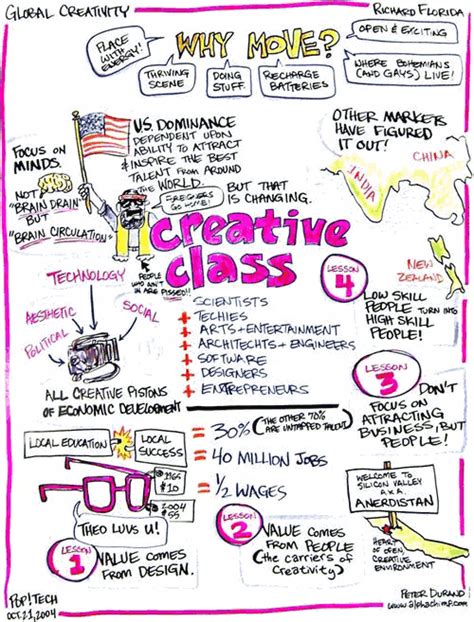 GLOBAL CREATIVITY
RICHARD FLORIDA
PLACE
WITH
ENERGY!
WHY MOVE?
OPEN & EXCITING
THRIVING
SCENE
DOING
STUFF.
RECHARGE
BATTERIES
WHERE BOHEMIANS
(AND GAYS) LIVE!
FOCUS ON
MINDS.
NOT
"BRAIN DRAIN"
BUT
"BRAIN CIRCULATION"
U.S. DOMINANCE
DEPENDENT UPON
ABILITY TO ATTRACT
& INSPIRE THE BEST
TALENT FROM AROUND
THE WORLD.
BUT THAT
IS CHANGING.
PEOPLE
WHO AIN'T
IN ARE PISSED!!
OTHER MARKETS
HAVE FIGURED
IT OUT!
CHINA
INDIA
NEW
ZEALAND
creative
class
TECHNOLOGY
AESTHETIC
SOCIAL
POLITICAL
ALL CREATIVE PISTONS
OF ECONOMIC DEVELOPMENT
+ SCIENTISTS
+ TECHIES
+ ARTS + ENTERTAINMENT
+ ARCHITECHTS + ENGINEERS
+ SOFTWARE
+ DESIGNERS
+ ENTREPRENEURS
= 30% (THE OTHER 70%
ARE UNTAPPED TALENT)
= 40 MILLION JOBS
= 1/2 WAGES
LESSON
4
LOW SKILL
PEOPLE TURN INTO
HIGH SKILL
PEOPLE!
LESSON
3
DON'T
FOCUS ON
ATTRACTING
BUSINESS, BUT
PEOPLE!
LOCAL EDUCATION
LOCAL
SUCCESS
$10
THEO LUVS U!
LESSON
1
VALUE COMES
FROM DESIGN.
LESSON
2
VALUE COMES
FROM PEOPLE
(the carriers of
Creativity)
WELCOME TO
SILICON VALLEY
A.K.A.
ANERDISTAN
HEART
OF OPEN,
CREATIVE
ENVIRONMENT
POP!TECH
OCT 21, 2004
PETER DURAND
www.alphachimp.com